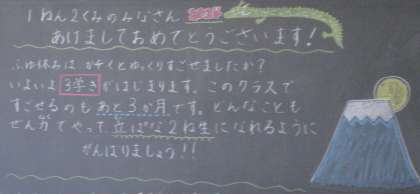 1ねん2くみのみなさん
あけましておめでとうございます!
ふゆ休みは かぞくとゆっくりすごせましたか?
いよいよ 3学き がはじまります。このクラスで
すごせるのも あと3か月 です。どんなことも
ぜん力でやって 立ぱな2ね生 になれるように
がんばりましょう!!